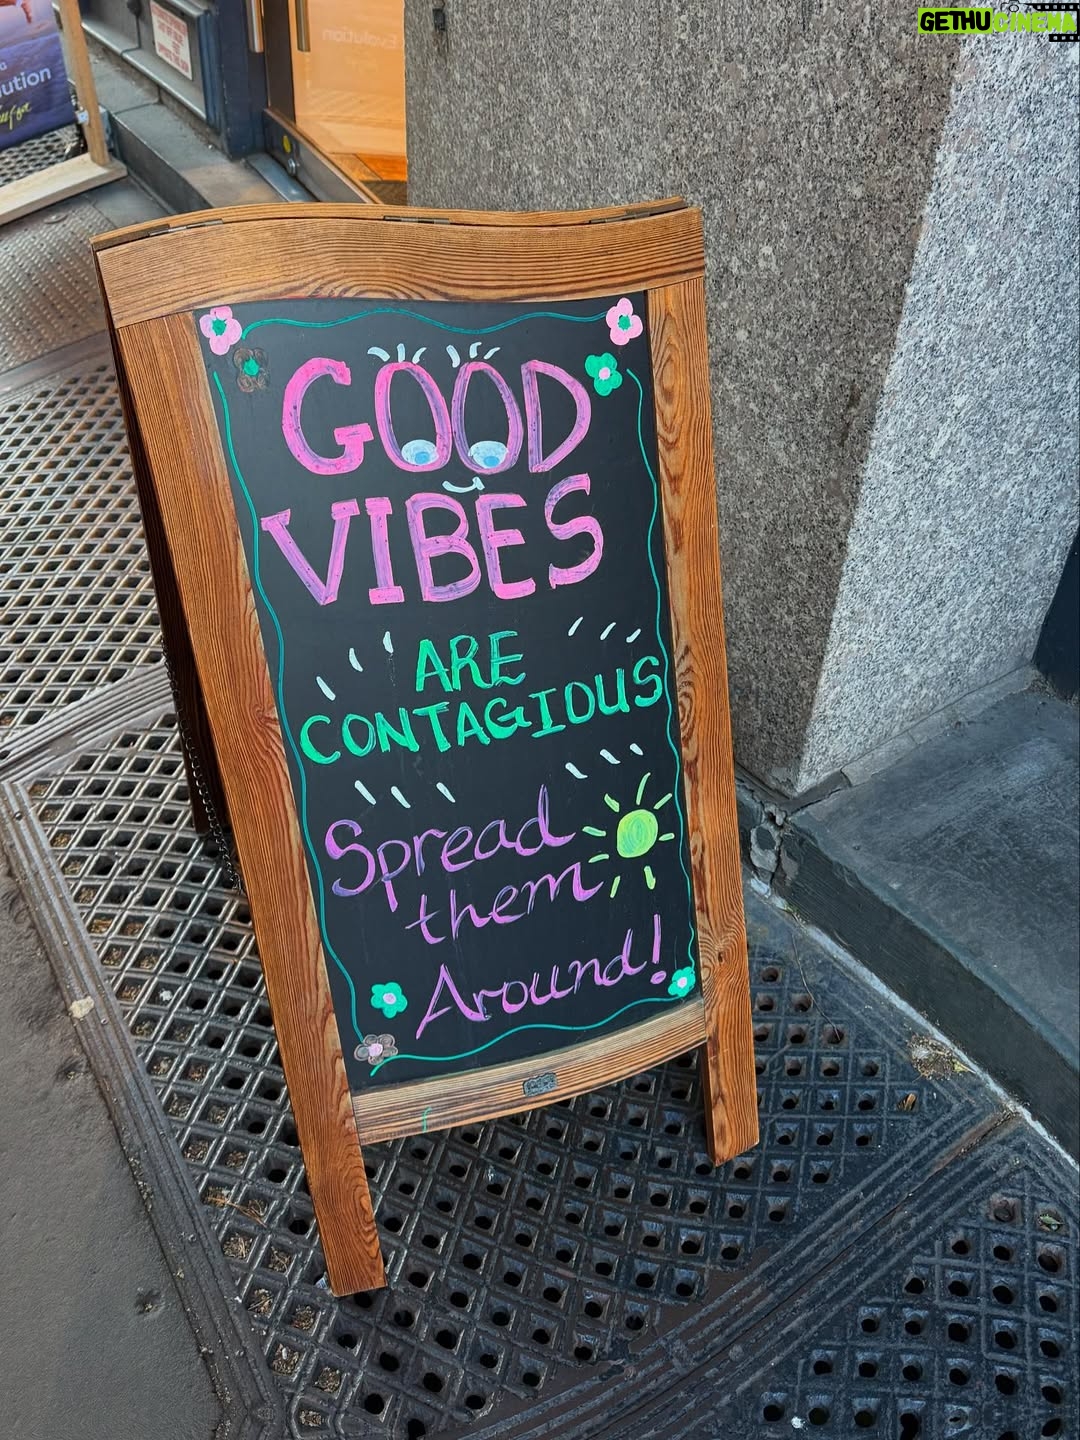 GETHUCINEMA
Evolution
ution
GOOD
VIBES
ARE
CONTAGIOUS
Spread
them
Around!